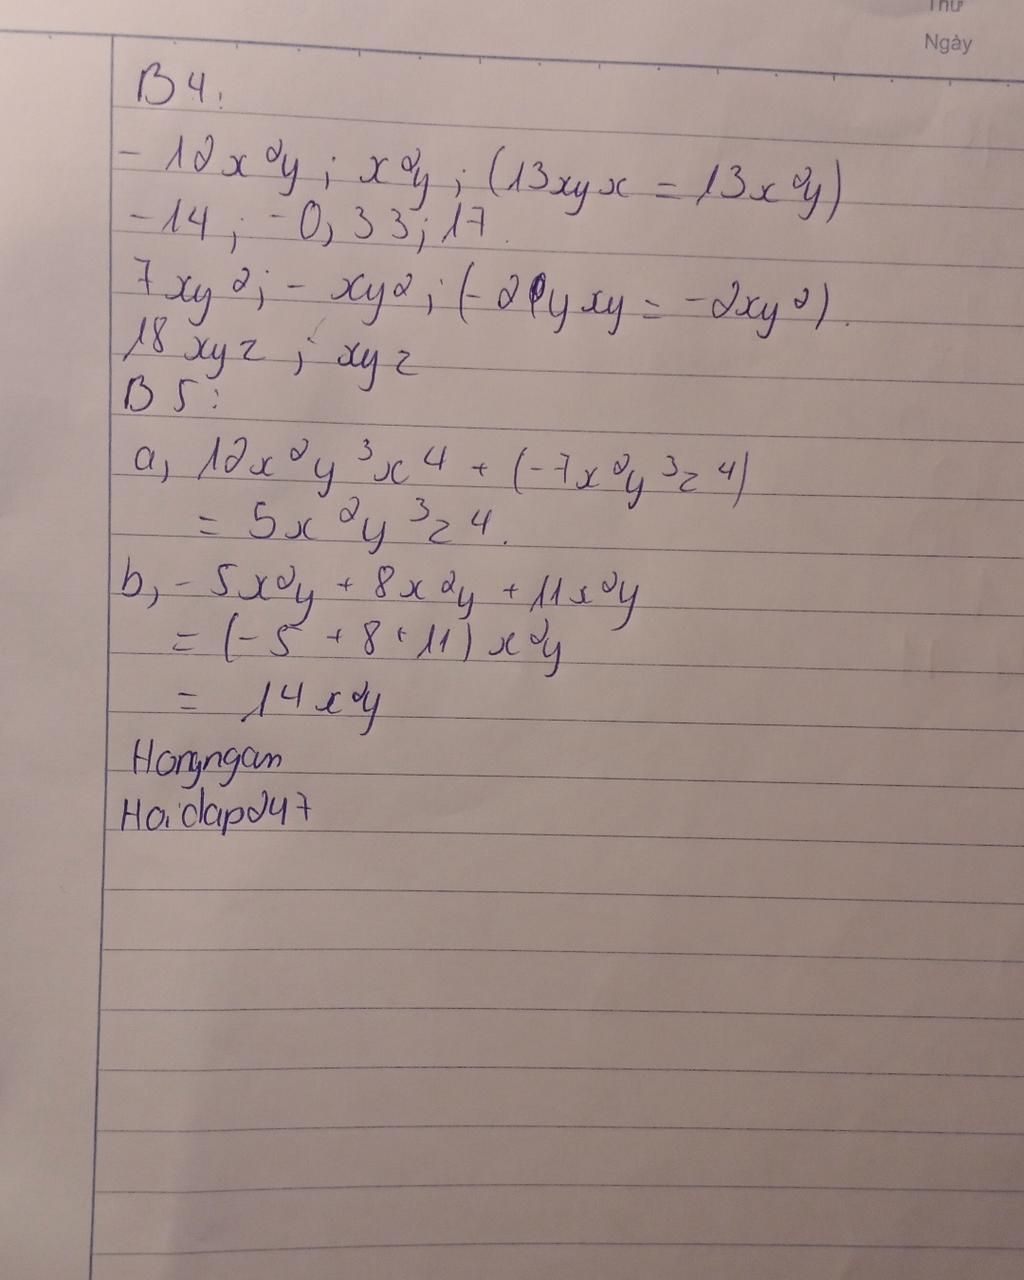 Thứ
Ngày
B 4:
- 12x²y ; x²y ; (13xyx = 13x²y)
-14 ; -0,33 ; 17.
7xy² ; - xy² ; (-2yxy = -2xy²).
18 xyz ; xyz
B 5:
a, 12x²y³x⁴ + (-7x²y³z⁴)
= 5x²y³z⁴.
b, - 5x²y + 8x²y + 11x²y
= (-5 + 8 + 11) x²y
= 14x²y
Hongngan
Hoidap247